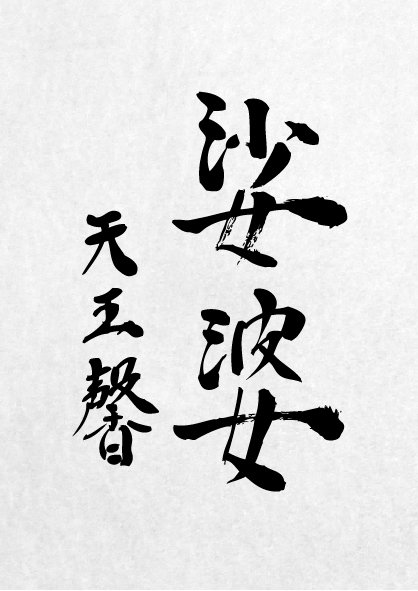 娑婆
天王馨